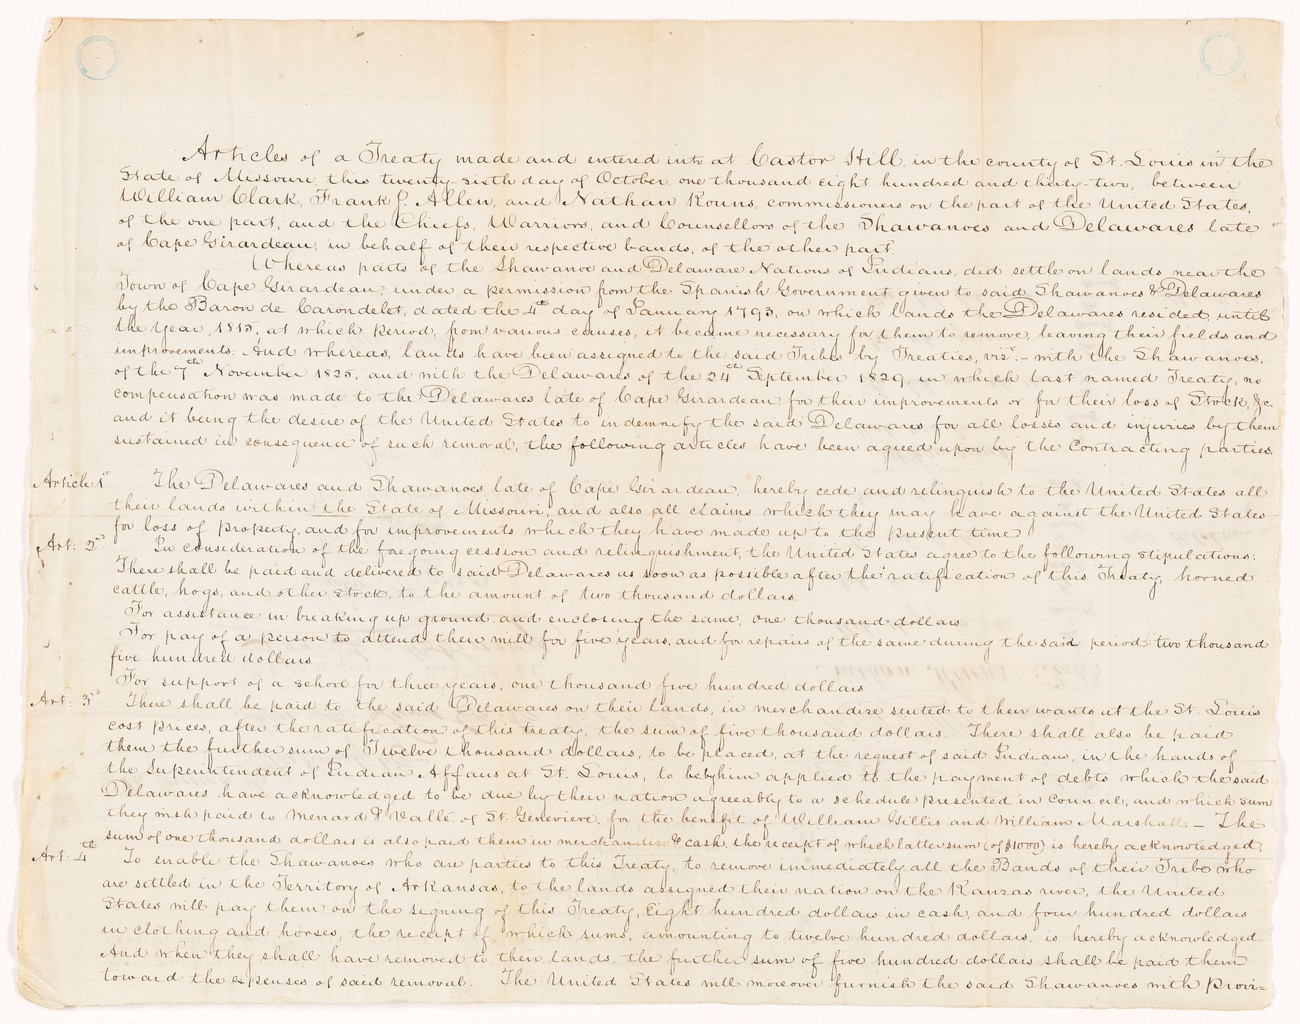 Articles of a Treaty made and entered into at Castor Hill, in the county of St. Louis in the
State of Missouri, this twenty-sixth day of October, one thousand eight hundred and thirty-two, between
William Clark, Frank J. Allen, and Nathan Kouns, commissioners on the part of the United States,
of the one part, and the Chiefs, Warriors, and Counsellors of the Shawanoes and Delawares late
of Cape Girardeau, in behalf of their respective bands, of the other part.
Whereas parts of the Shawanoe and Delaware Nations of Indians, did settle on lands near the
Town of Cape Girardeau, under a permission from the Spanish Government given to said Shawanoes & Delawares
by the Baron de Carondelet, dated the 4th day of January 1793, on which lands the Delawares resided, until
the year 1815, at which period, from various causes, it became necessary for them to remove, leaving their fields and
improvements. And whereas, lands have been assigned to the said Tribes by Treaties, viz: - with the Shawanoes,
of the 7th November 1825, and with the Delawares of the 24th September 1829, in which last named Treaty, no
compensation was made to the Delawares late of Cape Girardeau for their improvements or for their loss of Stock, &c.
and it being the desire of the United States to indemnify the said Delawares for all losses and injuries by them
sustained in consequence of such removal, the following articles have been agreed upon by the Contracting parties.
Article 1st The Delawares and Shawanoes late of Cape Girardeau, hereby cede and relinquish to the United States all
their lands within the State of Missouri, and also all claims which they may have against the United States
for loss of property, and for improvements which they have made up to the present time.
Art: 2nd In consideration of the foregoing cession and relinquishment, the United States agree to the following stipulations:
There shall be paid and delivered to said Delawares as soon as possible after the ratification of this Treaty, horned
cattle, hogs, and other stock, to the amount of two thousand dollars.
For assistance in breaking up ground and enclosing the same, one thousand dollars.
For pay of a person to attend their mill for five years, and for repairs of the same during the said period two thousand
five hundred dollars.
For support of a school for three years, one thousand five hundred dollars
Art: 3d There shall be paid to the said Delawares on their lands, in merchandize suited to their wants at the St. Louis
cost prices, after the ratification of this treaty, the sum of five thousand dollars. There shall also be paid
them the further sum of Twelve thousand dollars, to be placed, at the request of said Indians, in the hands of
the Superintendent of Indian Affairs at St. Louis, to be by him applied to the payment of debts which the said
Delawares have acknowledged to be due by their nation agreeably to a schedule presented in Council, and which sum
they wish paid to Menard & Vallé, of St. Genevieve, for the benefit of William Gillis and William Marshall. - The
sum of one thousand dollars is also paid them in merchandize & cash, the receipt of which latter sum (of $1000) is hereby acknowledged.
Art: 4th To enable the Shawanoes who are parties to this Treaty, to remove immediately all the Bands of their Tribe who
are settled in the Territory of Arkansas, to the lands assigned their nation on the Kanzas river, the United
States will pay them on the signing of this Treaty, Eight hundred dollars in cash, and four hundred dollars
in clothing and horses, the receipt of which sums, amounting to twelve hundred dollars, is hereby acknowledged.
And when they shall have removed to their lands, the further sum of five hundred dollars shall be paid them
toward the expenses of said removal. The United States will moreover furnish the said Shawanoes with provi=